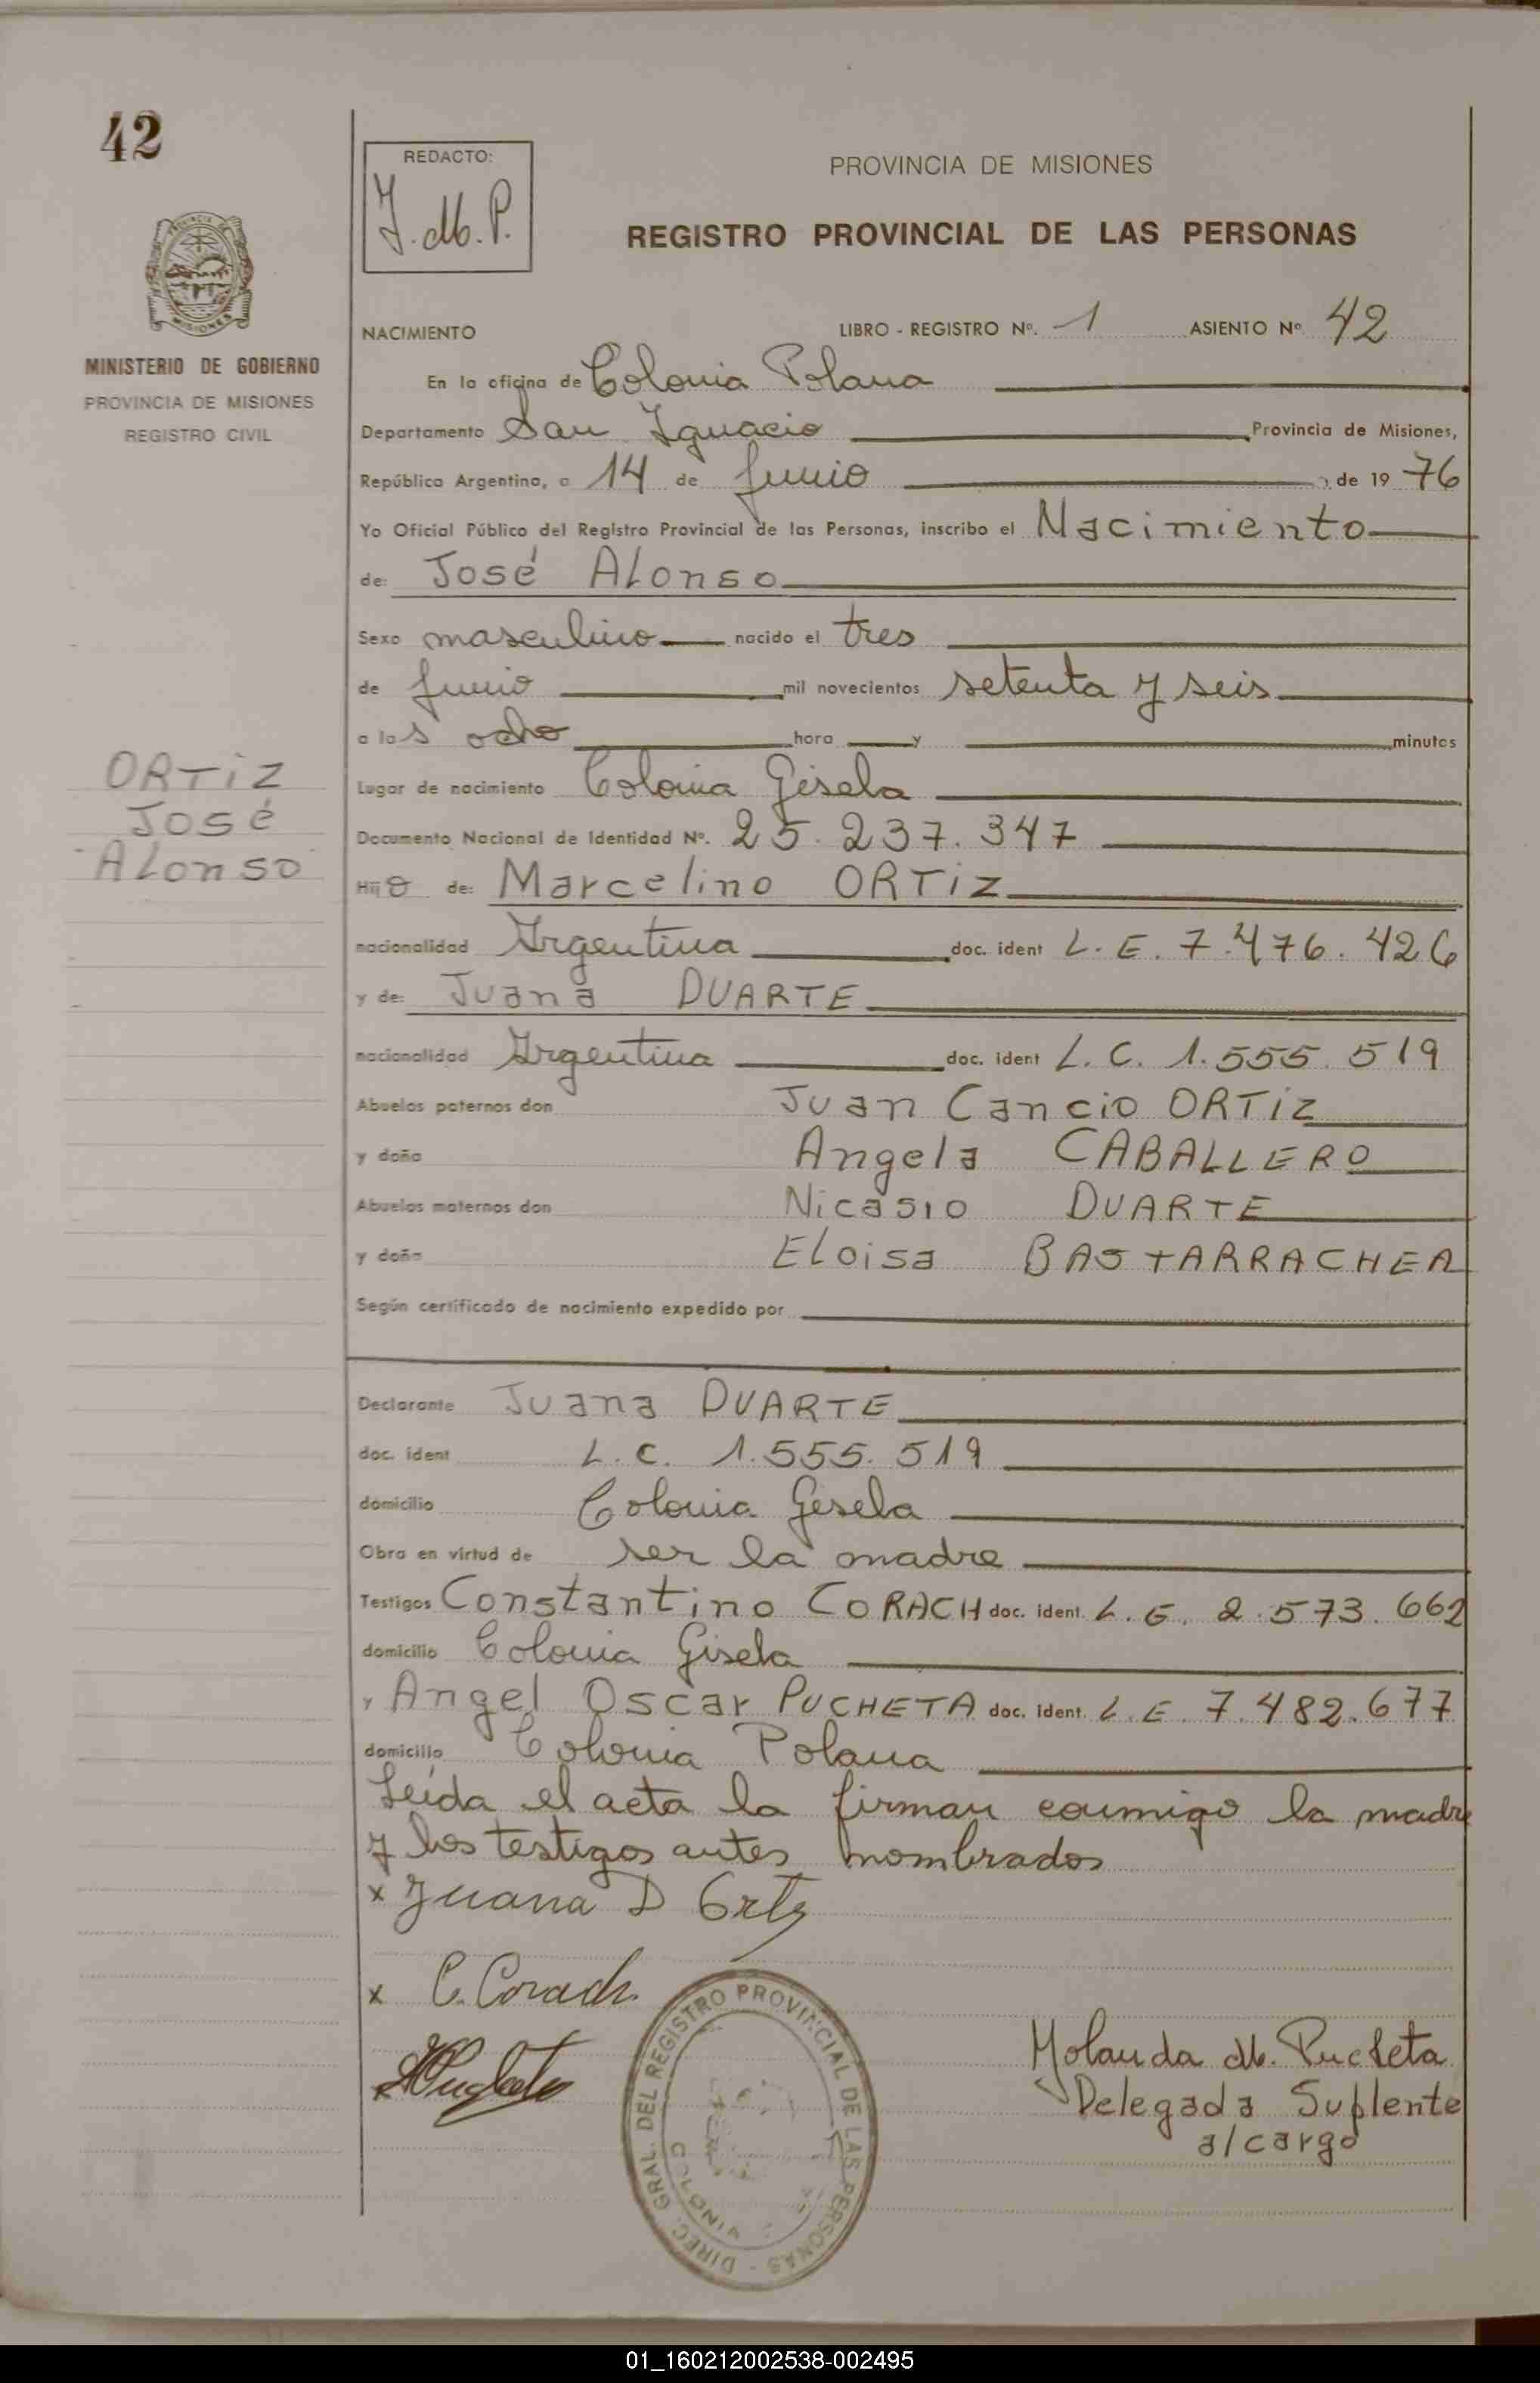 42
REDACTO:
Y. M. P.
PROVINCIA DE MISIONES
REGISTRO PROVINCIAL DE LAS PERSONAS
PROVINCIA DE
MISIONES
MINISTERIO DE GOBIERNO
PROVINCIA DE MISIONES
REGISTRO CIVIL
NACIMIENTO LIBRO - REGISTRO Nº. 1 ASIENTO Nº 42
En la oficina de Colonia Polana
Departamento San Ignacio Provincia de Misiones,
República Argentina, a 14 de Junio de 19 76
Yo Oficial Público del Registro Provincial de las Personas, inscribo el Nacimiento
de: José Alonso
Sexo masculino nacido el tres
de Junio mil novecientos setenta y seis
a las ocho hora y minutos
Lugar de nacimiento Colonia Gisela
Documento Nacional de Identidad Nº. 25.237.347
ORTiZ
José
Alonso
Hijo de: Marcelino ORTiZ
nacionalidad Argentina doc. ident L. E. 7.476.426
y de: Juana DUARTE
nacionalidad Argentina doc. ident L. C. 1.555.519
Abuelos paternos don Juan Cancio ORTiZ
y doña Angela CABALLERO
Abuelos maternos don Nicasio DUARTE
y doña Eloisa BASTARRACHEA
Según certificado de nacimiento expedido por
Declarante Juana DUARTE
doc. ident L. C. 1.555.519
domicilio Colonia Gesela
Obra en virtud de ser la madre
Testigos Constantino CORACH doc. ident. L. E. 2.573.662
domicilio Colonia Gisela
y Angel Oscar PUCHETA doc. ident. L. E. 7.482.677
domicilio Colonia Polana
Leída el acta la firman conmigo la madre
y los testigos antes nombrados
x Juana D Ortiz
x C. Corach
Yolanda M. Pucheta
Delegada Suplente
a/cargo
DIREC. GRAL. DEL REGISTRO PROVINCIAL DE LAS PERSONAS -
01_160212002538-002495